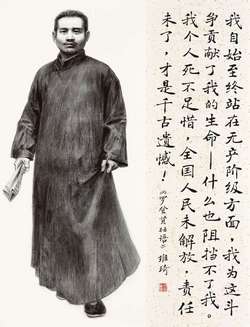 我自始至终站在无产阶级方面，我为这斗
争贡献了我的生命—什么也阻挡不了我。
我个人死不足惜，全国人民未解放，责任
未了，才是千古遗憾！
罗登贤 语 维琦